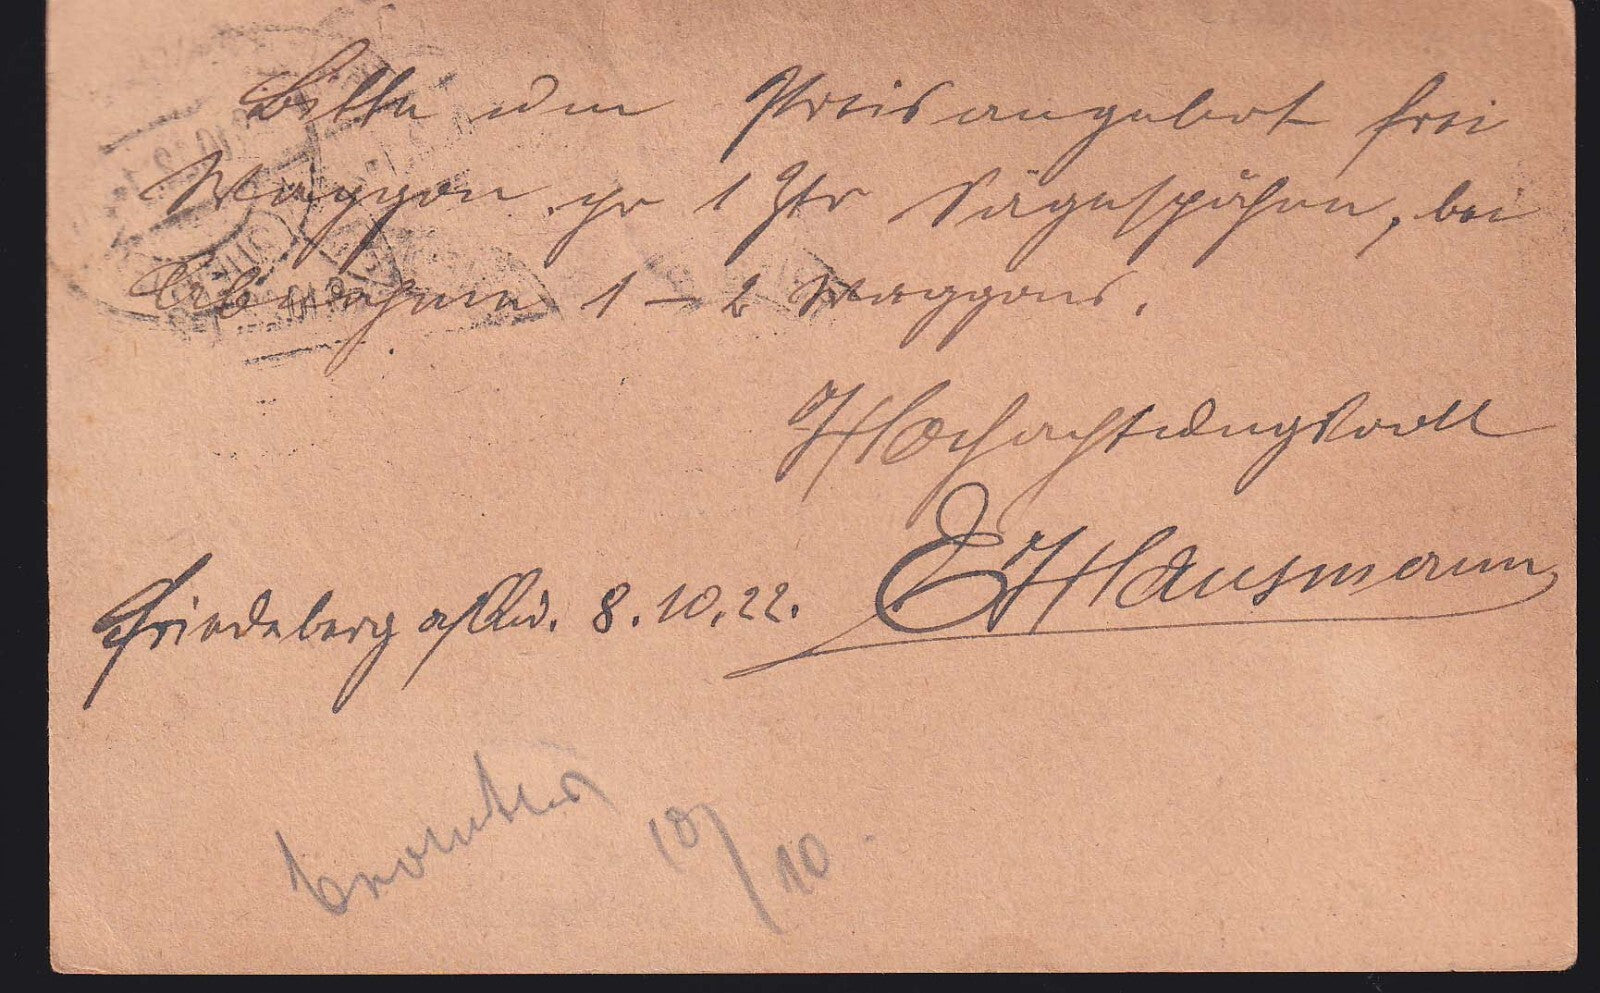 Bitte um Preisangebot frei
Waggon pr 1 Ztr Sägespähne, bei
Abnahme 1 – 2 Waggons.
Hochachtungsvoll
E Hausmann
Friedeberg a/Qu. 8.10.22.
10/10